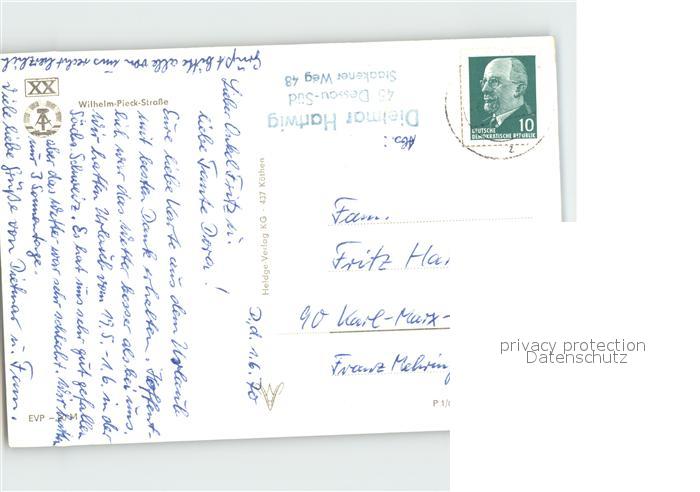 XX
Wilhelm-Pieck-Straße
D,d. 1.6.70
Lieber Onkel Fritz u.
liebe Tante Dora!
Eure liebe Karte aus dem Urlaub
mit besten Dank erhalten. Hoffent-
lich war das Wetter besser als bei uns.
Wir hatten Urlaub vom 17.5. - 1.6. in der
Schweiz. Es hat uns sehr gut gefallen
aber das Wetter war sehr schlecht. Wir hatten
nur 3 Sonnentage.
Viele liebe Grüße von Dietmar u. Fam.
Grüßt bitte alle von uns recht herzlich
EVP -
Heldge-Verlag KG 437 Köthen
Abs.:
Dietmar Hartwig
45 Dessau-Süd
Stackener Weg 48
10
DEUTSCHE
DEMOKRATISCHE REPUBLIK
Fam.
Fritz Har
90 Karl-Marx-
Franz Mehring
P 1/
privacy protection
Datenschutz